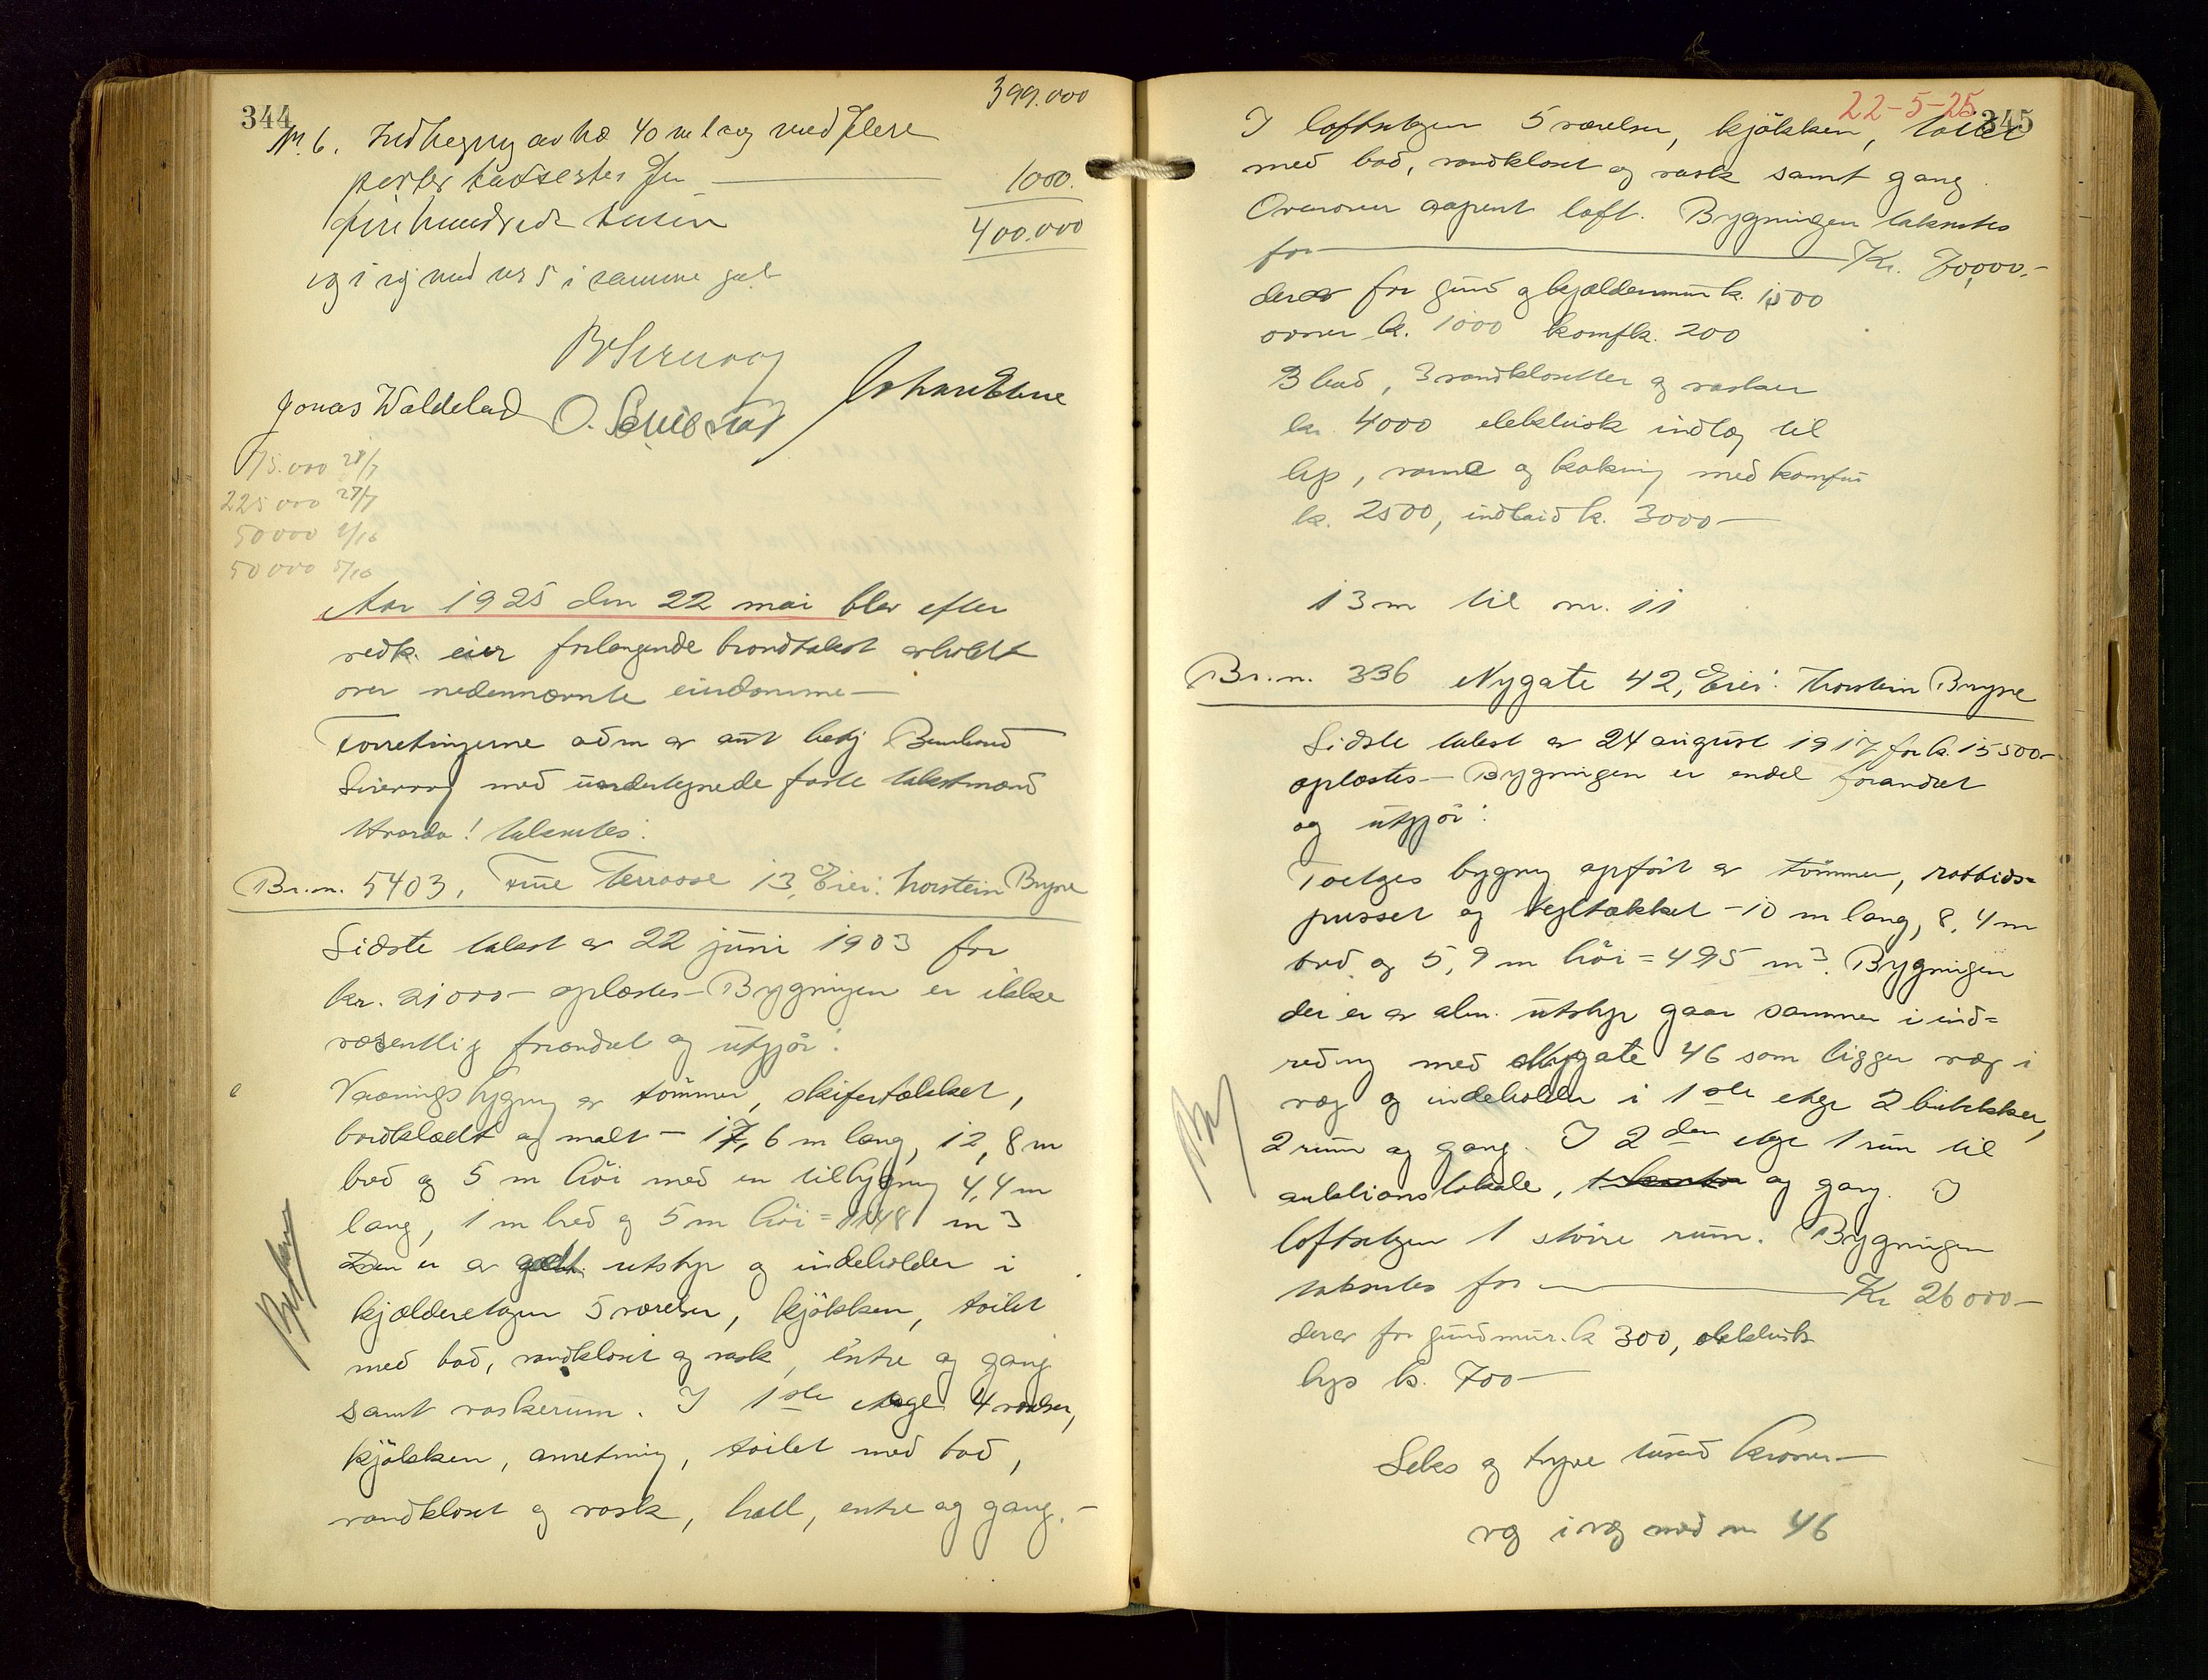 344
399.000
Nr. 6. Indhegning av ca 40 m lang med flere
porter taxeres for 1000.
fire hundrede tusen 400.000
vg i vg med nr 5 i samme gat
B Sirevaag
Jonas Waldeland O.
15.000 28/7
225000 27/7
50000 2/10
50000 5/10
Aar 1925 den 22 mai blev efter
vedk. eier forlangende brandtakst avholdt
over nedennævnte eiendomme—
Forretningerne adm av aut betj Bernhard
Sirevaag med undertegnede faste takstmænd
Hvorda! taksertes:
Br.n. 5403, Fue Terrasse 13, Eier: Thorstein Bryne
Sidste takst av 22 juni 1903 for
kr. 21000— oplæstes— Bygningen er ikke
væsentlig forandret og utgjør:
Vaaningsbygning av tømmer, skifertækket,
bordklædt og malt — 17,6 m lang, 12,8 m
bred og 5 m høi med en tilbygning 4,4 m
lang, 1 m bred og 5 m høi = 1148 m3
Den er av godt utstyr og indeholder i
kjælderetagen 5 værelser, kjøkken, toilet
med bad, vandkloset og vask, entre og gang
samt vaskerum. I 1ste etage 4 værelser,
kjøkken, anretning, toilet med bad,
vandkloset og vask, hall, entre og gang.—
22-5-25
345
I loftsetagen 5 værelser, kjøkken, toilet
med bad, vandkloset og vask samt gang
Ovenover aapent loft. Bygningen taksertes
for Kr. 70,000.—
derav for grund og kjældermur k. 1500
ovner k. 1000 komf k. 200
3 bad, 3 vandklosetter og vasker
kr. 4000 elektrisk indlæg til
lys, varme og kokning med komfur
k. 2500, indbaid k. 3000—
13 m til nr. 11
Br.n. 336 Nygate 42, Eier: Thorstein Bryne
Sidste takst av 24 august 1917 for k. 15500—
oplæstes— Bygningen er endel forandret
og utgjør:
Toetages bygning opført av tømmer, rabbids=
pusset og tegltækket — 10 m lang, 8,4 m
bred og 5,9 m høi = 495 m3. Bygningen
der er av alm. utstyr gaar sammen i ind=
redning med Nygate 46 som ligger væg i
væg og indeholder i 1ste etage 2 butikker,
2 rum og gang. I 2den etge 1 rum til
auktionslokale, 1 kontor og gang. I
loftsetagen 1 større rum. Bygningen
taksertes for Kr 26000—
derav for grundmur. k 300, elektrisk
lys k. 700—
Seks og tyve tusind kroner—
vg i vg med nr 46